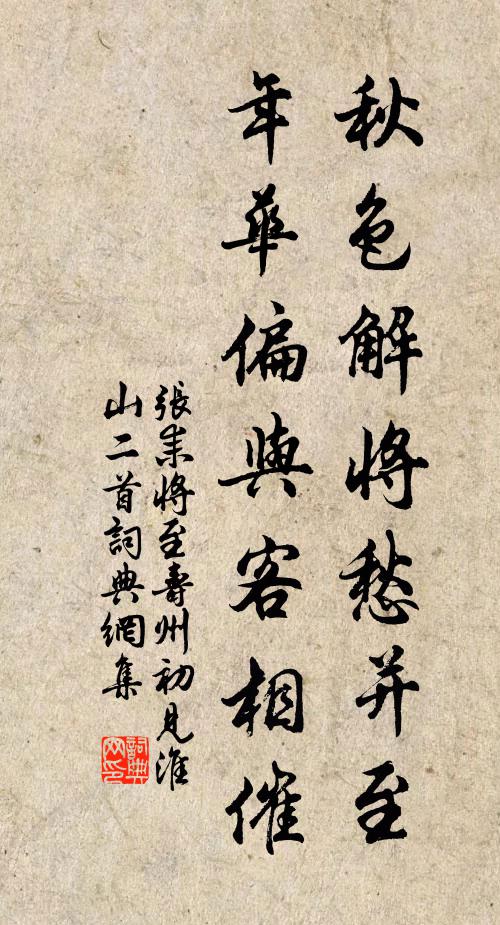 秋色解將愁并至
年華偏與客相催
張耒將至壽州初見淮
山二首詞典網集
詞典
网印